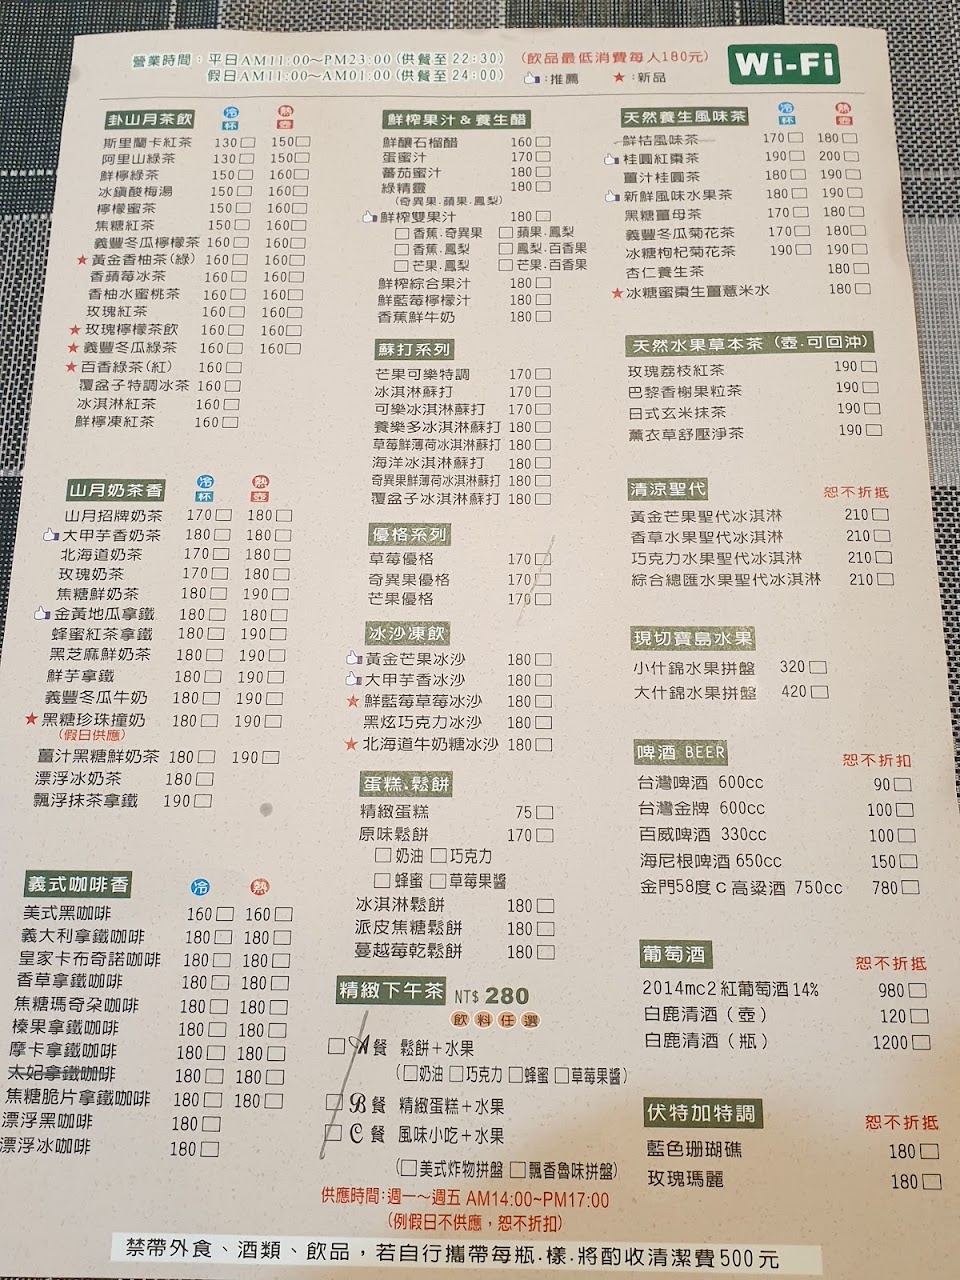 營業時間：平日AM11:00～PM23:00(供餐至22:30)
假日AM11:00～AM01:00(供餐至24:00)
(飲品最低消費每人180元)
：推薦 ★：新品
Wi-Fi
卦山月茶飲 冷 杯 熱 壺
斯里蘭卡紅茶 130□ 150□
阿里山綠茶 130□ 150□
鮮檸綠茶 150□ 160□
冰鎮酸梅湯 150□ 160□
檸檬蜜茶 150□ 160□
焦糖紅茶 150□ 160□
義豐冬瓜檸檬茶 160□ 160□
★黃金香柚茶(綠) 160□ 160□
香蘋莓冰茶 160□ 160□
香柚水蜜桃茶 160□ 160□
玫瑰紅茶 160□ 160□
★玫瑰檸檬茶飲 160□ 160□
★義豐冬瓜綠茶 160□ 160□
★百香綠茶(紅) 160□
覆盆子特調冰茶 160□
冰淇淋紅茶 160□
鮮檸凍紅茶 160□
山月奶茶香 冷 杯 熱 壺
山月招牌奶茶 170□ 180□
大甲芋香奶茶 180□ 180□
北海道奶茶 170□ 180□
玫瑰奶茶 170□ 180□
焦糖鮮奶茶 180□ 190□
金黃地瓜拿鐵 180□ 180□
蜂蜜紅茶拿鐵 180□ 190□
黑芝麻鮮奶茶 180□ 190□
鮮芋拿鐵 180□ 190□
義豐冬瓜牛奶 180□ 190□
★黑糖珍珠撞奶 180□ 190□
(假日供應)
薑汁黑糖鮮奶茶 180□ 190□
漂浮冰奶茶 180□
飄浮抹茶拿鐵 190□
義式咖啡香 冷 熱
美式黑咖啡 160□ 160□
義大利拿鐵咖啡 180□ 180□
皇家卡布奇諾咖啡 180□ 180□
香草拿鐵咖啡 180□ 180□
焦糖瑪奇朵咖啡 180□ 180□
榛果拿鐵咖啡 180□ 180□
摩卡拿鐵咖啡 180□ 180□
太妃拿鐵咖啡 180□ 180□
焦糖脆片拿鐵咖啡 180□ 180□
漂浮黑咖啡 180□
漂浮冰咖啡 180□
鮮榨果汁&養生醋
鮮釀石榴醋 160□
蛋蜜汁 170□
蕃茄蜜汁 180□
綠精靈 180□
(奇異果.蘋果.鳳梨)
鮮榨雙果汁 180□
□香蕉.奇異果 □蘋果.鳳梨
□香蕉.鳳梨 □鳳梨.百香果
□芒果.鳳梨 □芒果.百香果
鮮榨綜合果汁 180□
鮮藍莓檸檬汁 180□
香蕉鮮牛奶 180□
蘇打系列
芒果可樂特調 170□
冰淇淋蘇打 170□
可樂冰淇淋蘇打 170□
養樂多冰淇淋蘇打 180□
草莓鮮薄荷冰淇淋蘇打 180□
海洋冰淇淋蘇打 180□
奇異果鮮薄荷冰淇淋蘇打 180□
覆盆子冰淇淋蘇打 180□
優格系列
草莓優格 170□
奇異果優格 170□
芒果優格 170□
冰沙凍飲
黃金芒果冰沙 180□
大甲芋香冰沙 180□
★鮮藍莓草莓冰沙 180□
黑炫巧克力冰沙 180□
★北海道牛奶糖冰沙 180□
蛋糕.鬆餅
精緻蛋糕 75□
原味鬆餅 170□
□奶油 □巧克力
□蜂蜜 □草莓果醬
冰淇淋鬆餅 180□
派皮焦糖鬆餅 180□
蔓越莓乾鬆餅 180□
精緻下午茶 NT$ 280
飲料任選
□A餐 鬆餅+水果
(□奶油 □巧克力 □蜂蜜 □草莓果醬)
□B餐 精緻蛋糕+水果
□C餐 風味小吃+水果
(□美式炸物拼盤 □飄香魯味拼盤)
供應時間:週一～週五 AM14:00~PM17:00
(例假日不供應，恕不折扣)
天然養生風味茶 冷 杯 熱 壺
鮮桔風味茶 170□ 180□
桂圓紅棗茶 190□ 200□
薑汁桂圓茶 180□ 190□
新鮮風味水果茶 180□ 190□
黑糖薑母茶 170□ 180□
義豐冬瓜菊花茶 170□ 180□
冰糖枸杞菊花茶 190□ 190□
杏仁養生茶 180□
★冰糖蜜棗生薑薏米水 180□
天然水果草本茶（壺.可回沖）
玫瑰荔枝紅茶 190□
巴黎香榭果粒茶 190□
日式玄米抹茶 190□
薰衣草舒壓淨茶 190□
清涼聖代 恕不折抵
黃金芒果聖代冰淇淋 210□
香草水果聖代冰淇淋 210□
巧克力水果聖代冰淇淋 210□
綜合總匯水果聖代冰淇淋 210□
現切寶島水果
小什錦水果拼盤 320□
大什錦水果拼盤 420□
啤酒 BEER 恕不折扣
台灣啤酒 600cc 90□
台灣金牌 600cc 100□
百威啤酒 330cc 100□
海尼根啤酒 650cc 150□
金門58度C高粱酒 750cc 780□
葡萄酒 恕不折抵
2014mc2紅葡萄酒14% 980□
白鹿清酒（壺） 120□
白鹿清酒（瓶） 1200□
伏特加特調 恕不折抵
藍色珊瑚礁 180□
玫瑰瑪麗 180□
禁帶外食、酒類、飲品，若自行攜帶每瓶.樣.將酌收清潔費500元